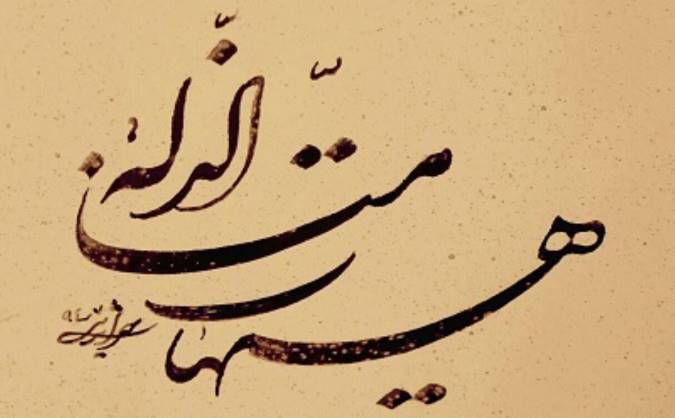 هیهات
منّا الذّلة